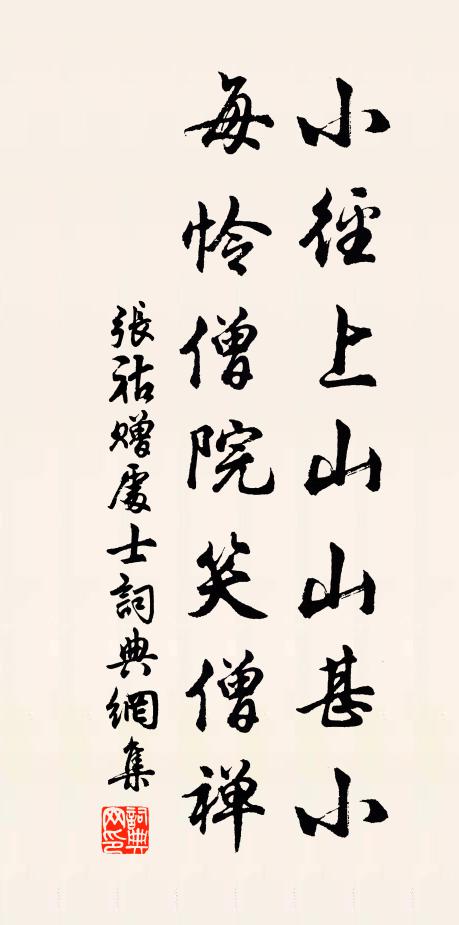 小徑上山山甚小
每憐僧院笑僧禅
張祜贈處士詞典網集
詞典
网印